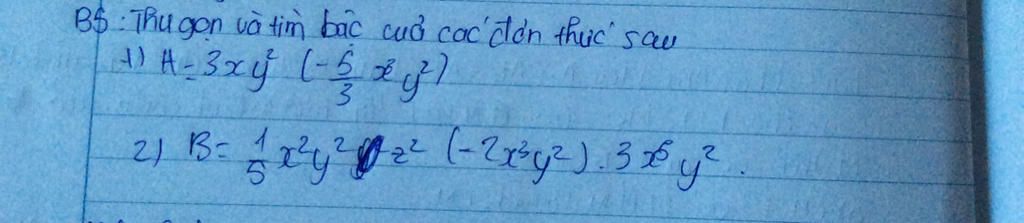 B5: Thu gọn và tìm bậc cuả các đơn thức sau
1) A = 3xy² (-5/3 x³y²)
2) B = 1/5 x²y² z² (-2x³y²). 3x⁵y².